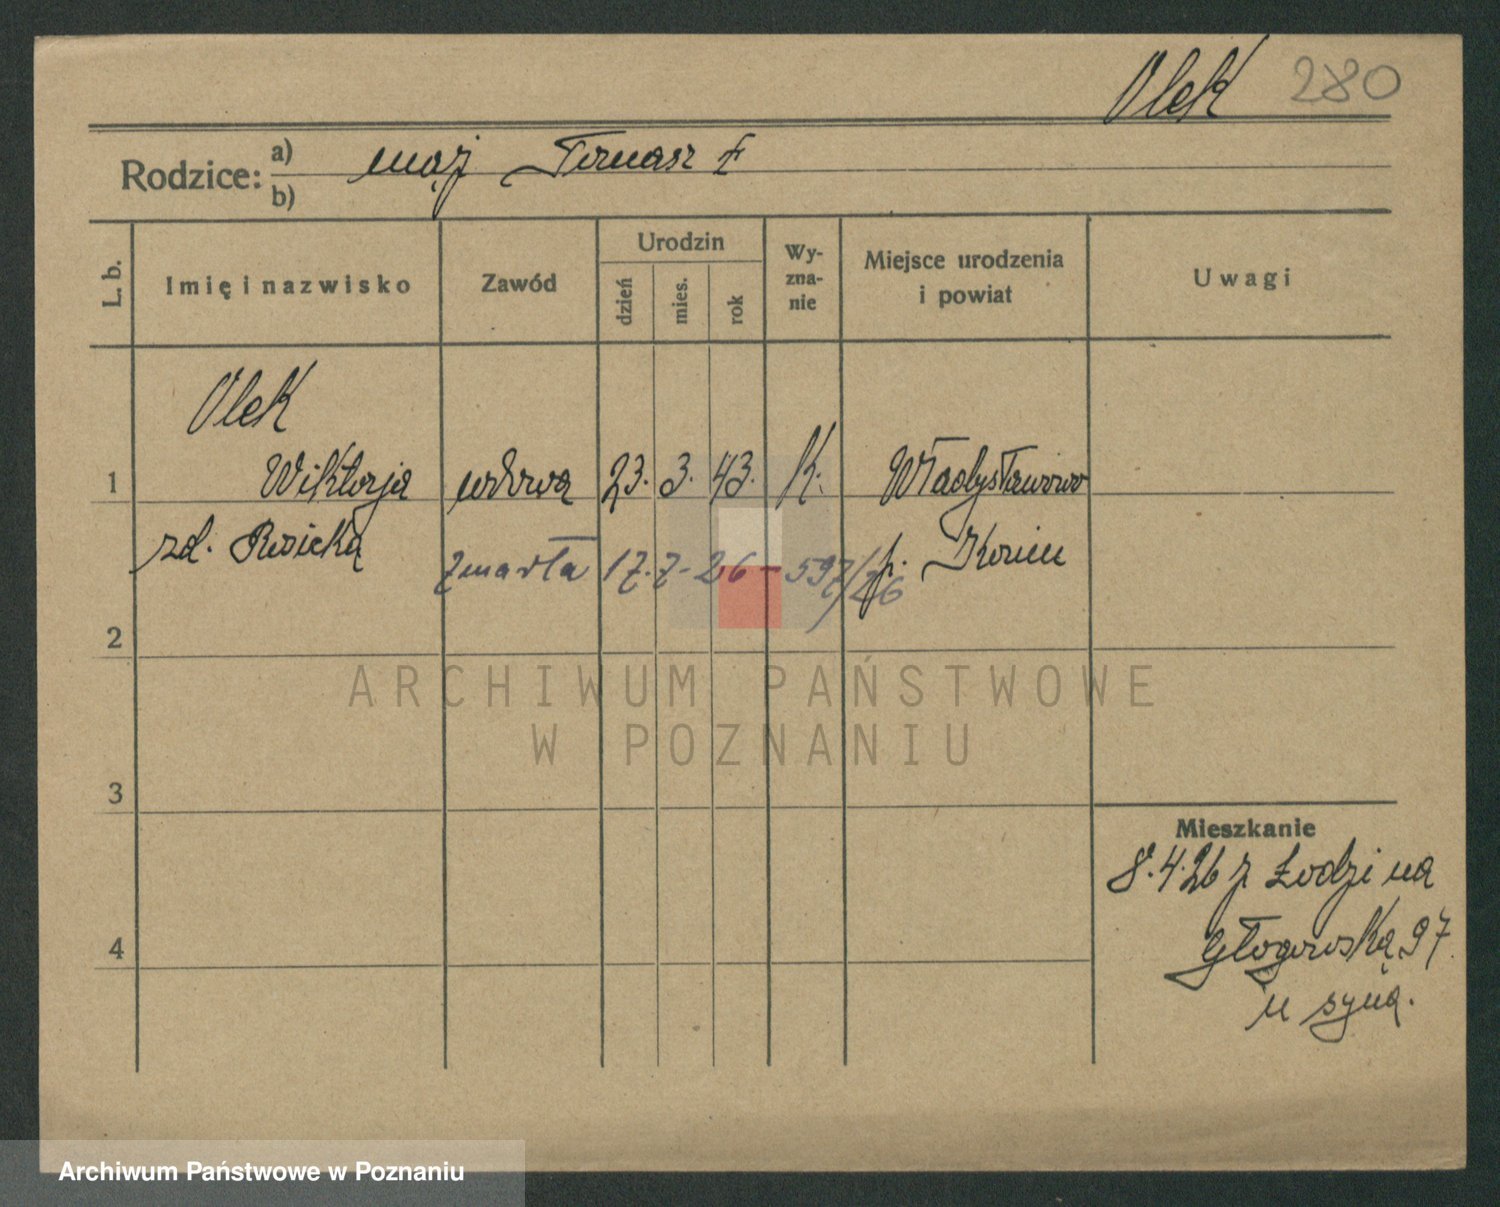 Olek 280
Rodzice: a) mąż Tomasz †
b)
L. b. Imię i nazwisko Zawód Urodzin dzień mies. rok Wy-zna-nie Miejsce urodzenia i powiat Uwagi
Olek
1 Wiktorja wdowa 23. 3. 43. K. Władysławowo
zd. p. Konin
zmarła 17.7-26-597/26
2
ARCHIWUM PAŃSTWOWE
W POZNANIU
3
Mieszkanie
8.4.26 z Łodzi na
Głogowską 97.
u syna.
4
Archiwum Państwowe w Poznaniu